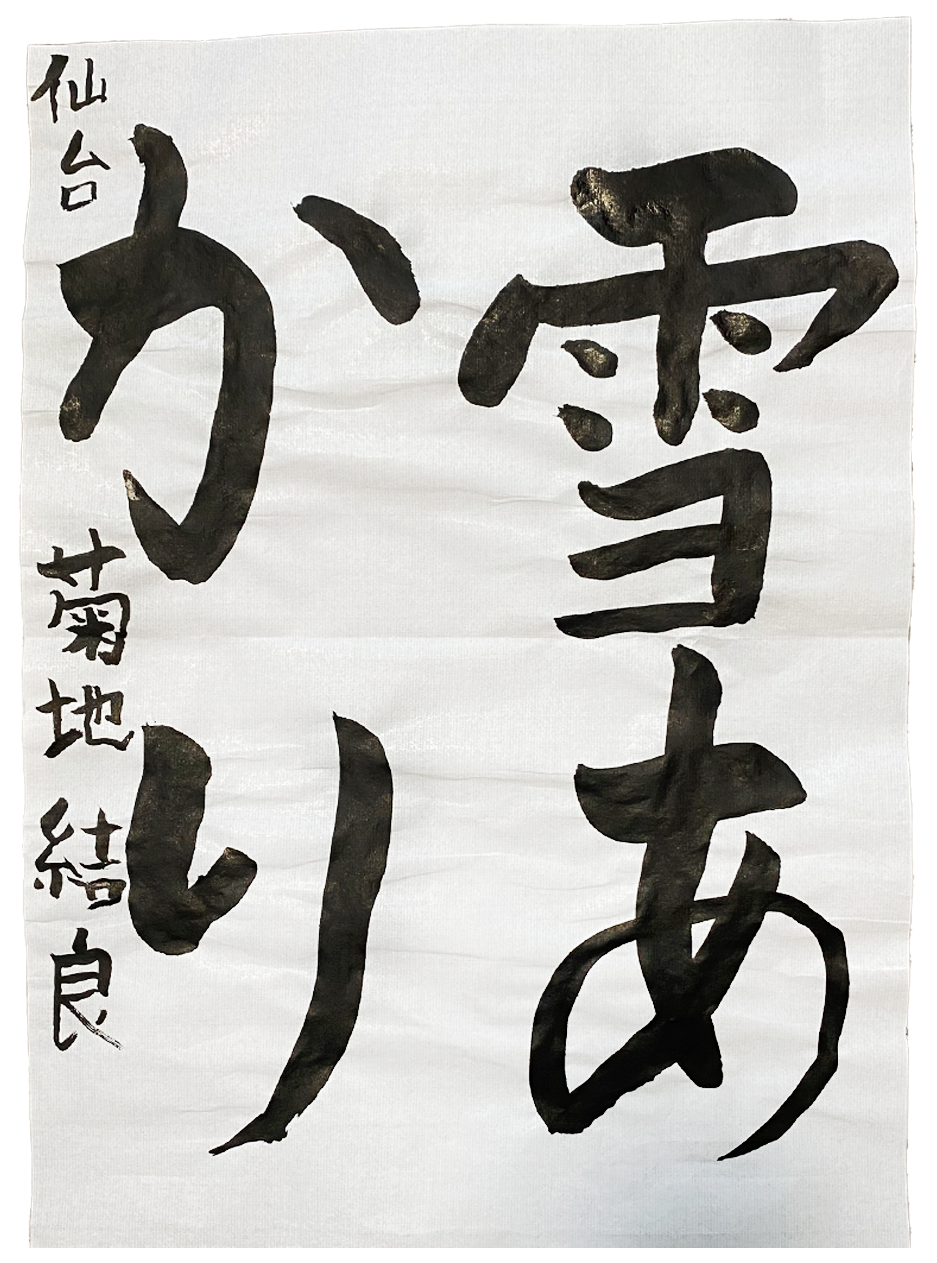 雪あ
かり
仙台 菊地結良